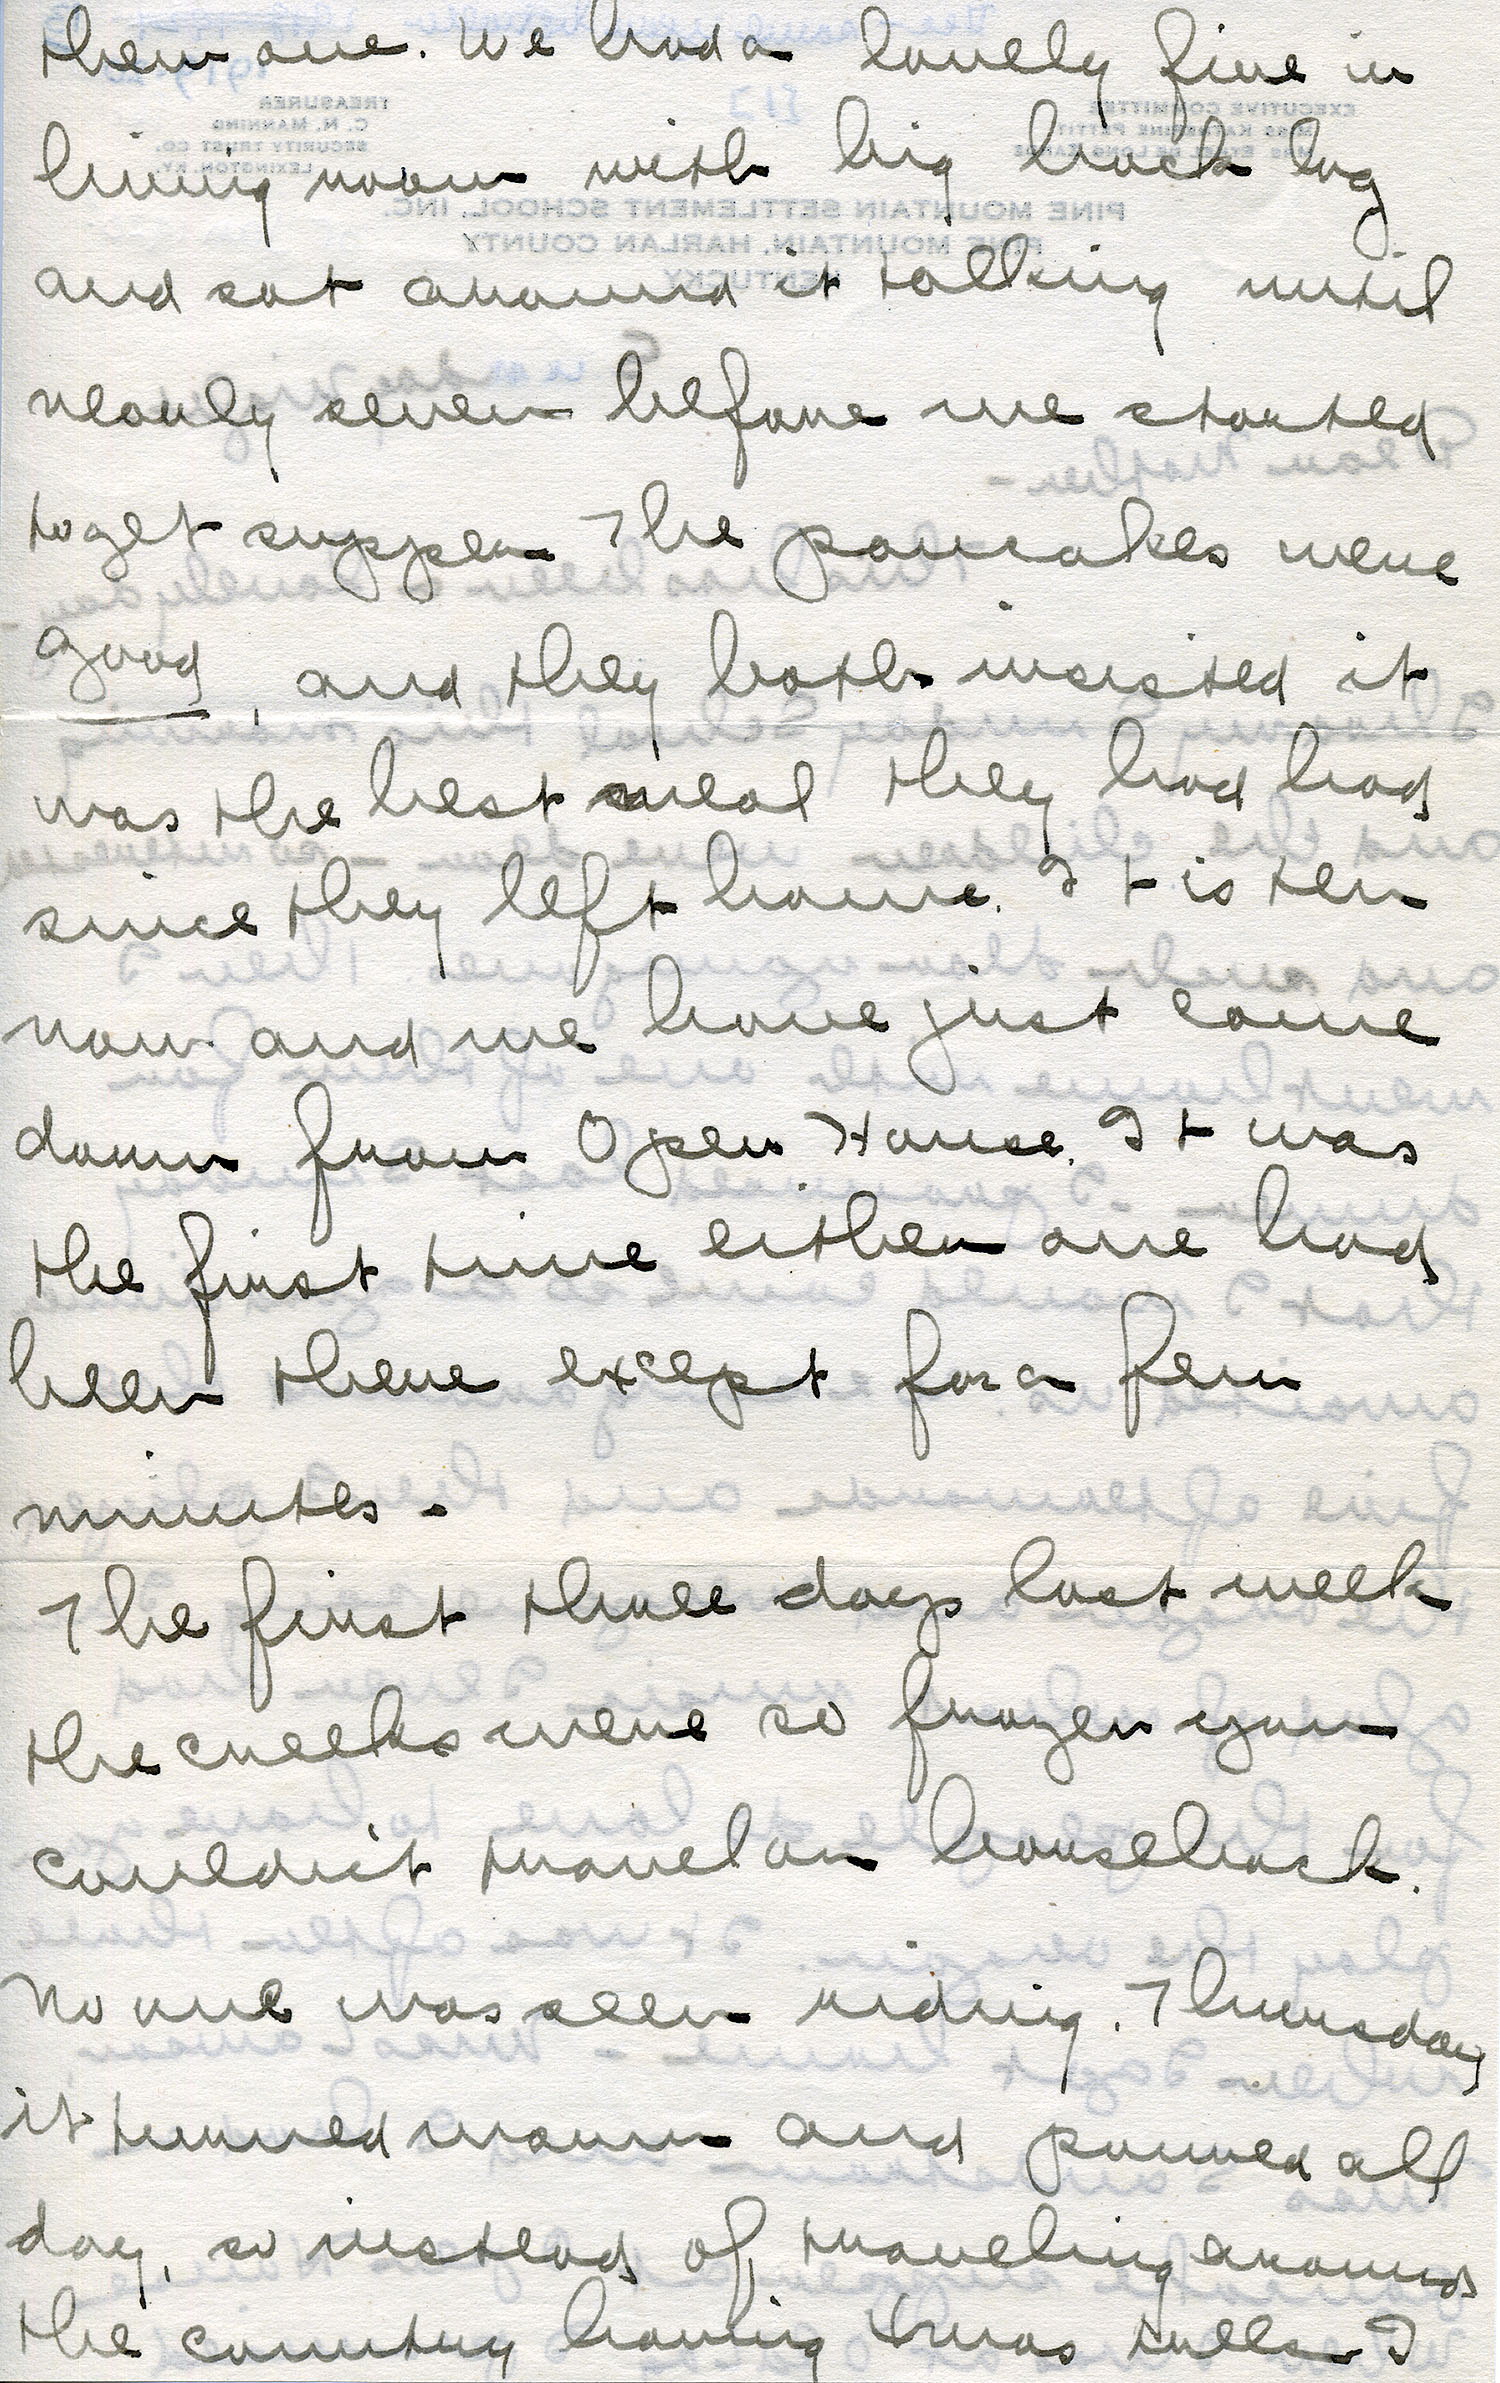 them are. We had a lovely fire in
living room with big back log
and sat around it talking until
nearly seven before we started
to get supper The pancakes were
good, and they both insisted it
was the best meal they had had
since they left home. It is ten
now and we have just come
down from Open House. It was
the first time either one had
been there except for a few
minutes -
The first three days last week
the creeks were so frozen you
couldn't travel on horseback.
No one was seen riding. Thursday
it turned warm and poured all
day, so instead of traveling around
the country having Xmas I